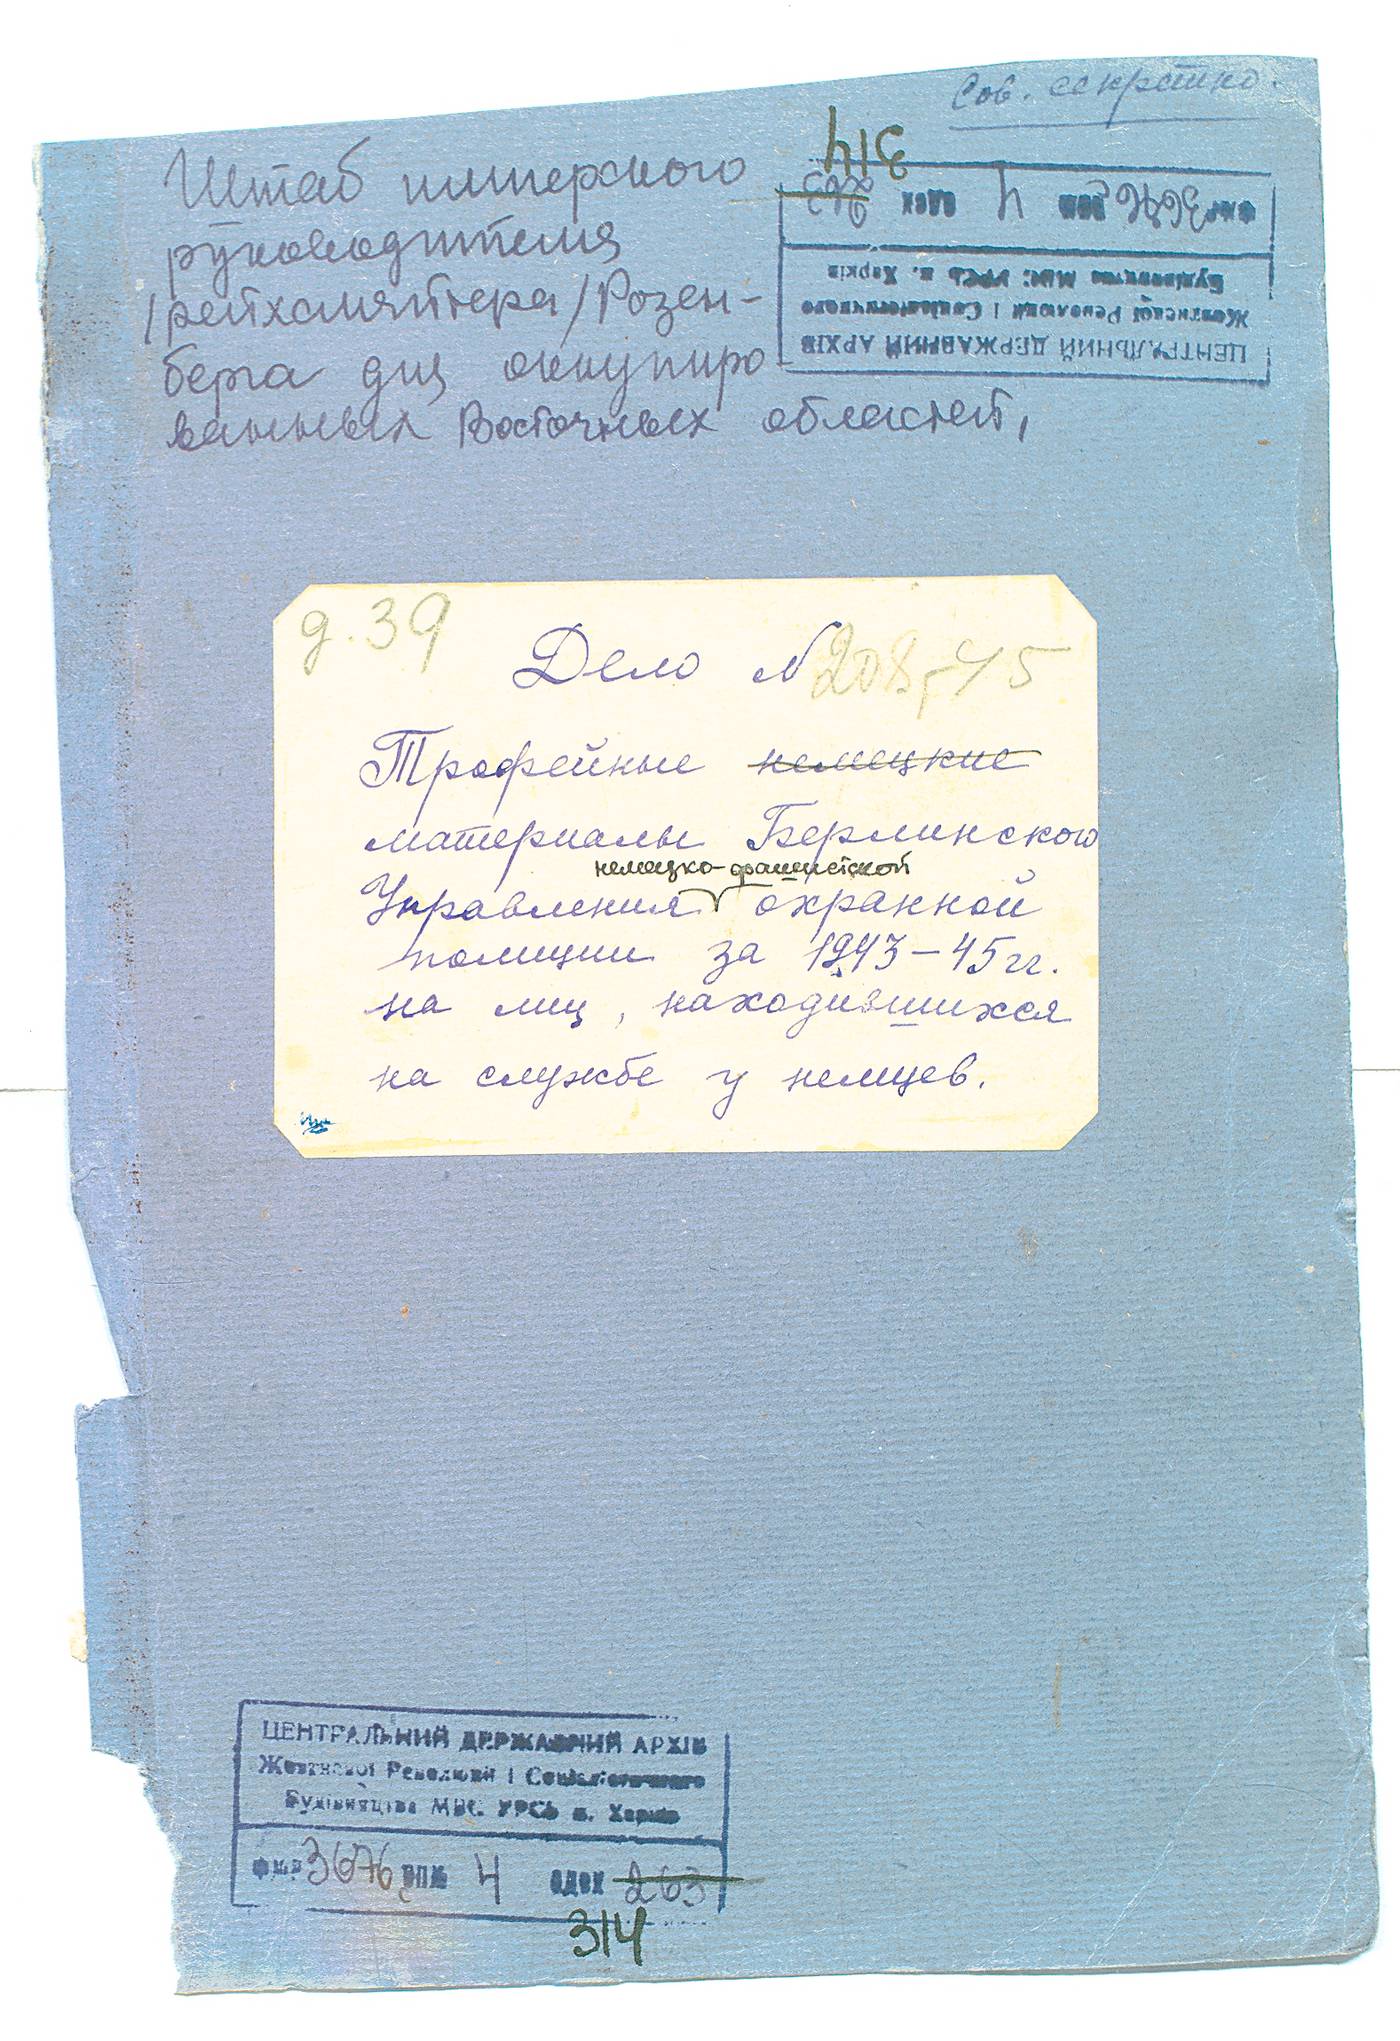 Сов. секретно.
Штаб имперского
руководителя
/рейхсляйтера/ Розен-
берга для оккупиро
ванных Восточных областей,
314
ФМР 3676 ОПИС 4 ОДОХ 263
ЦЕНТРАЛЬНИЙ ДЕРЖАВНИЙ АРХІВ
Жовтневої Революції і Соціалістичного
Будівництва МВС. УРСР в. Харків
д. 39
Дело № 208, 45
Трофейные немецкие
материалы Берлинского
немецко-фашистской
Управления охранной
полиции за 1943-45 гг.
на лиц, находившихся
на службе у немцев.
ЦЕНТРАЛЬНИЙ ДЕРЖАВНИЙ АРХІВ
Жовтневої Революції і Соціалістичного
Будівництва МВС. УРСР в. Харків
3676 4 ОДОХ 263
314